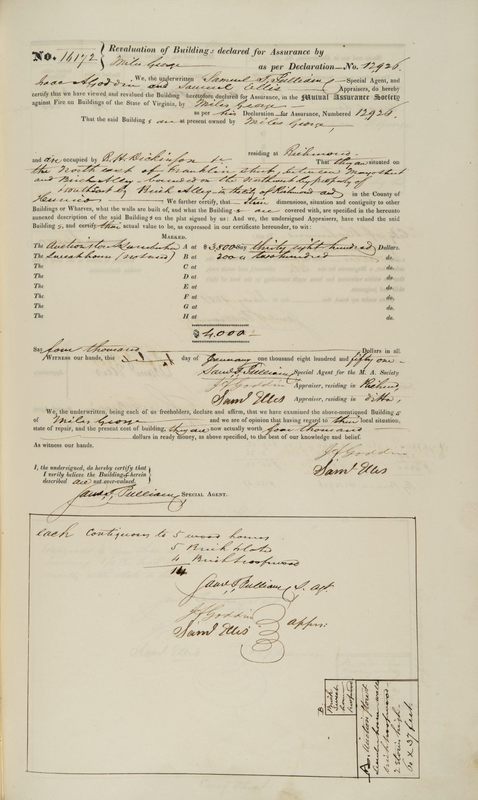 No. 16172 Revaluation of Buildings declared for Assurance by
Miles George as per Declaration—No. 12926.
We, the underwritten Samuel T. Pulliam Special Agent, and
Isaac A. Goddin and Samuel Ellis Appraisers, do hereby
certify that we have viewed and revalued the Building heretofore declared for Assurance, in the Mutual Assurance Society
against Fire on Buildings of the State of Virginia, by Miles George
as per his Declaration for Assurance, Numbered 12926.
That the said Buildings are at present owned by Miles George,
and are occupied by R. H. Dickinson residing at Richmond That they are situated on
the North east of Franklin street between Mayo street
and bounded on the North east by property of
by Brick Alley in the City of Richmond and in the County of
Henrico We further certify, that their dimensions, situation and contiguity to other
Buildings or Wharves, what the walls are built of, and what the Buildings are covered with, are specified in the hereunto
annexed description of the said Buildings on the plat signed by us: And we, the undersigned Appraisers, have valued the said
Buildings, and certify their actual value to be, as expressed in our certificate hereunder, to wit:
Marked.
The Auction Store A at $ 3,800 Say thirty eight hundred Dollars.
The B at 200 " two hundred do.
The C at do.
The D at do.
The E at do.
The F at do.
The G at do.
The H at do.
$ 4,000
Say four thousand Dollars in all.
Witness our hands, this day of January one thousand eight hundred and fifty one
Saml T. Pulliam Special Agent for the M. A. Society
Goddin Appraiser, residing in Richmd,
Saml Ellis Appraiser, residing in ditto,
We, the underwritten, being each of us freeholders, declare and affirm, that we have examined the above-mentioned Buildings
of Miles George and we are of opinion that having regard to their local situation,
state of repair, and the present cost of building, they are now actually worth four thousand
dollars in ready money, as above specified, to the best of our knowledge and belief.
As witness our hands.
Goddin
Saml Ellis
I, the undersigned, do hereby certify that
I verily believe the Buildings herein
described are not over-valued.
Saml T. Pulliam Special Agent.
each Contiguous to 5 wood houses
5 Brick
4 Brick
14
Saml T. Pulliam S. agt.
Goddin
Saml Ellis
apprs:
B
Brick
A
2 stories high
37 feet